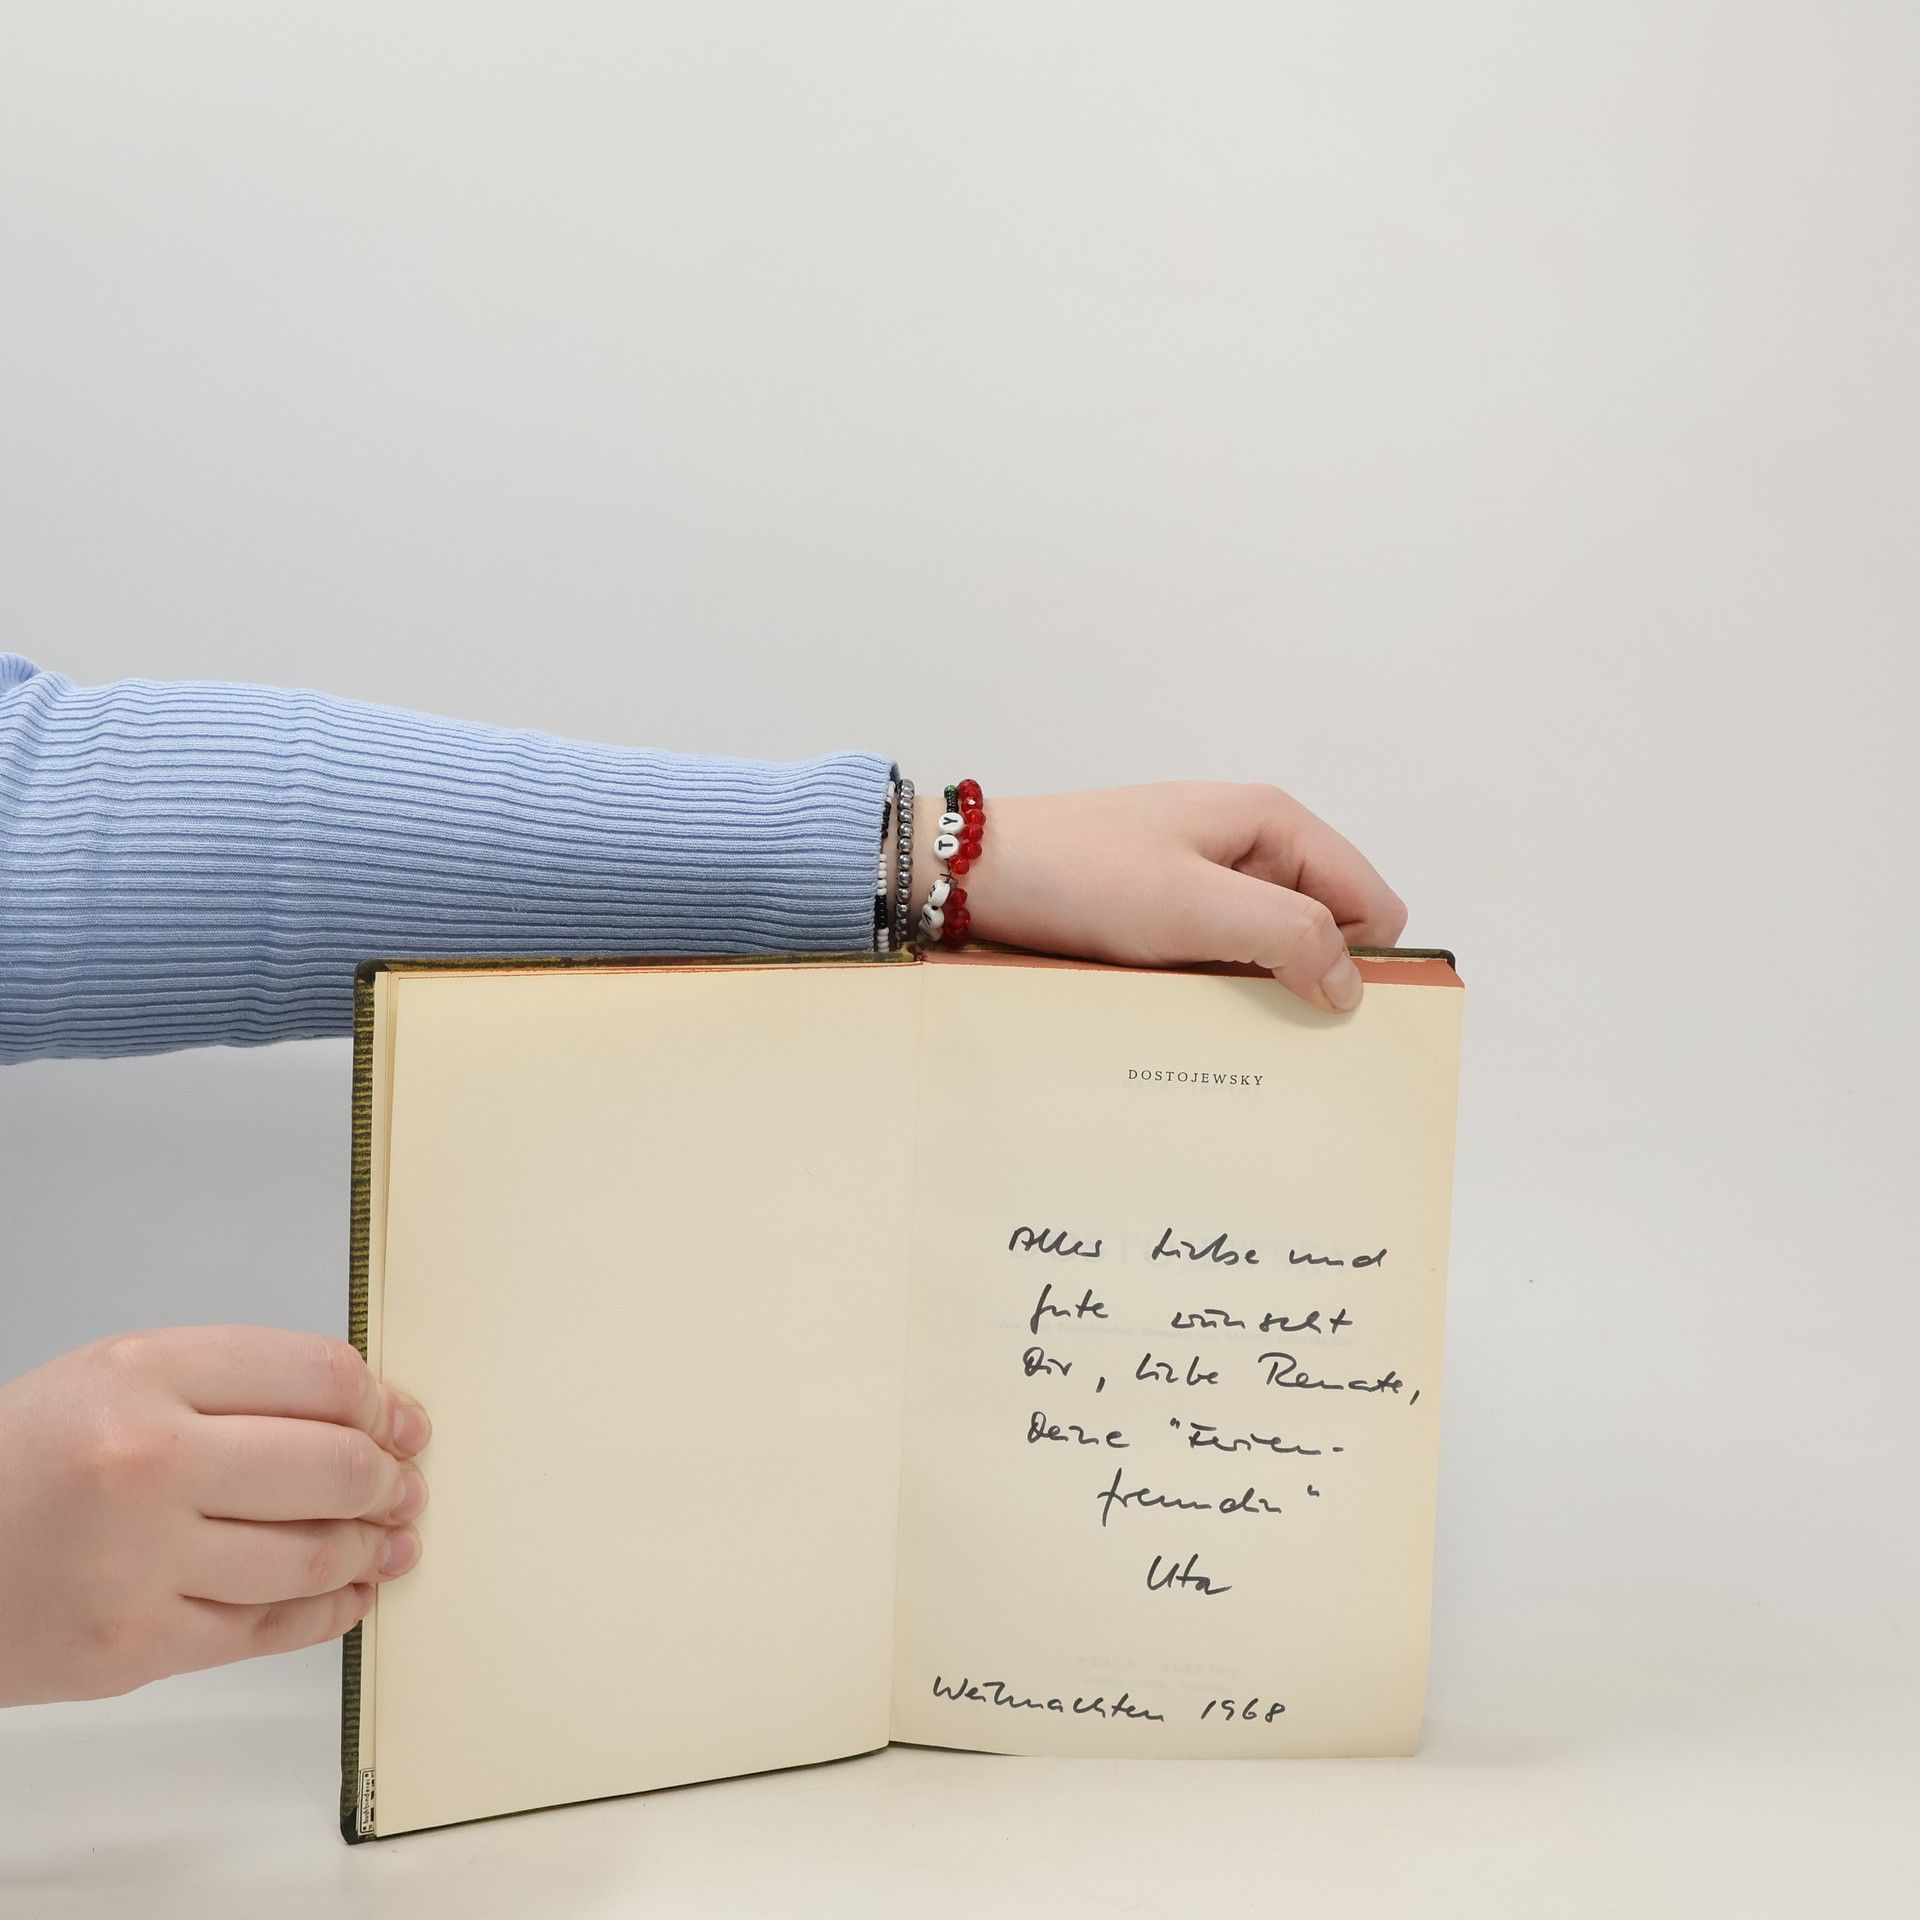 T Y
DOSTOJEWSKY
Alles Liebe und
gute wünscht
Dir, liebe Renate,
Deine "Ferien-
freundin"
Uta
Weihnachten 1968
buchbinderei